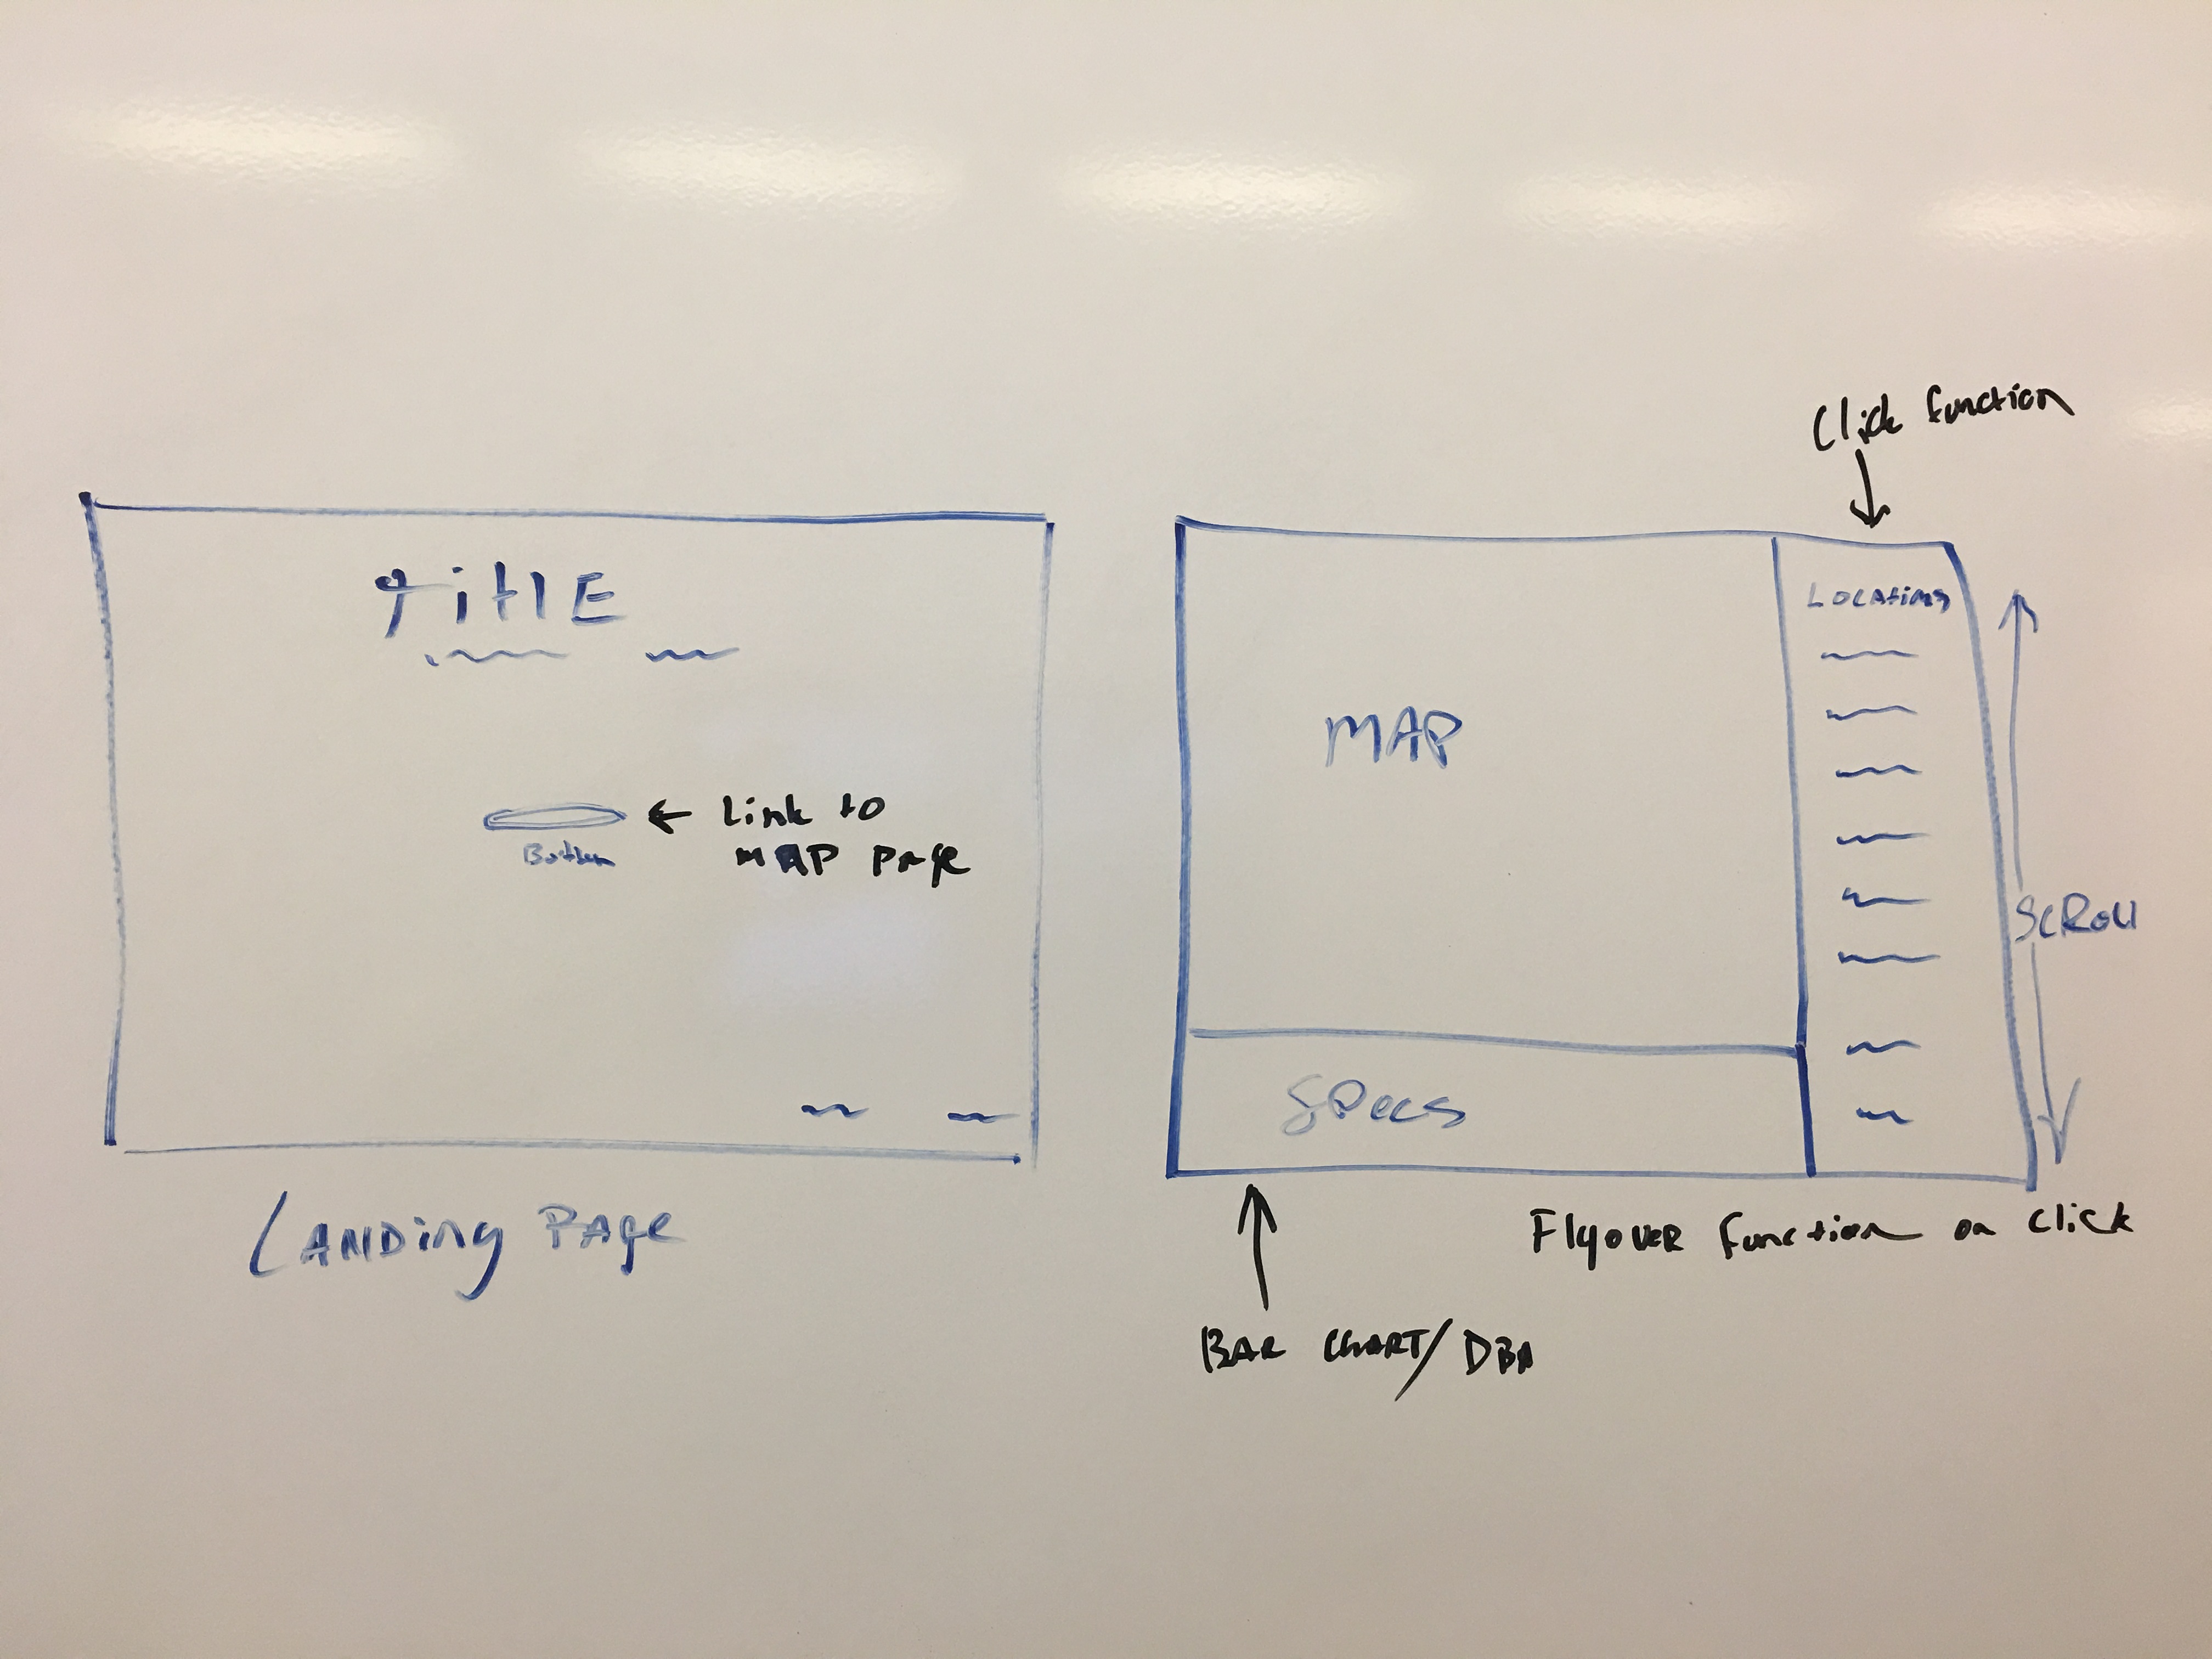 Title
Button
Link to
MAP Page
Landing Page
Click function
Locations
MAP
SCRoll
Specs
Flyover function on click
BAR CHART/DBA